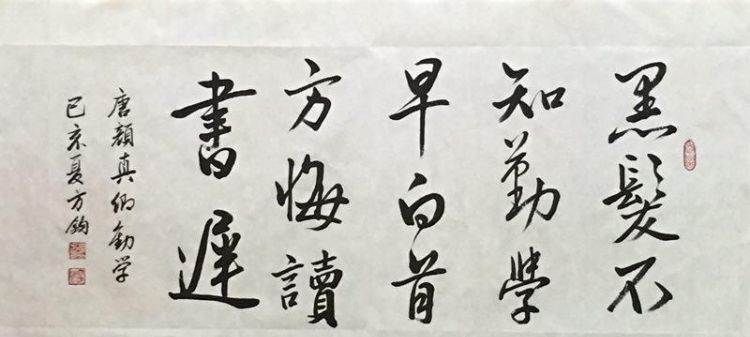 黑髮不
知勤學
早白首
方悔讀
書遲
唐顏真卿勸学
己亥夏方鈞